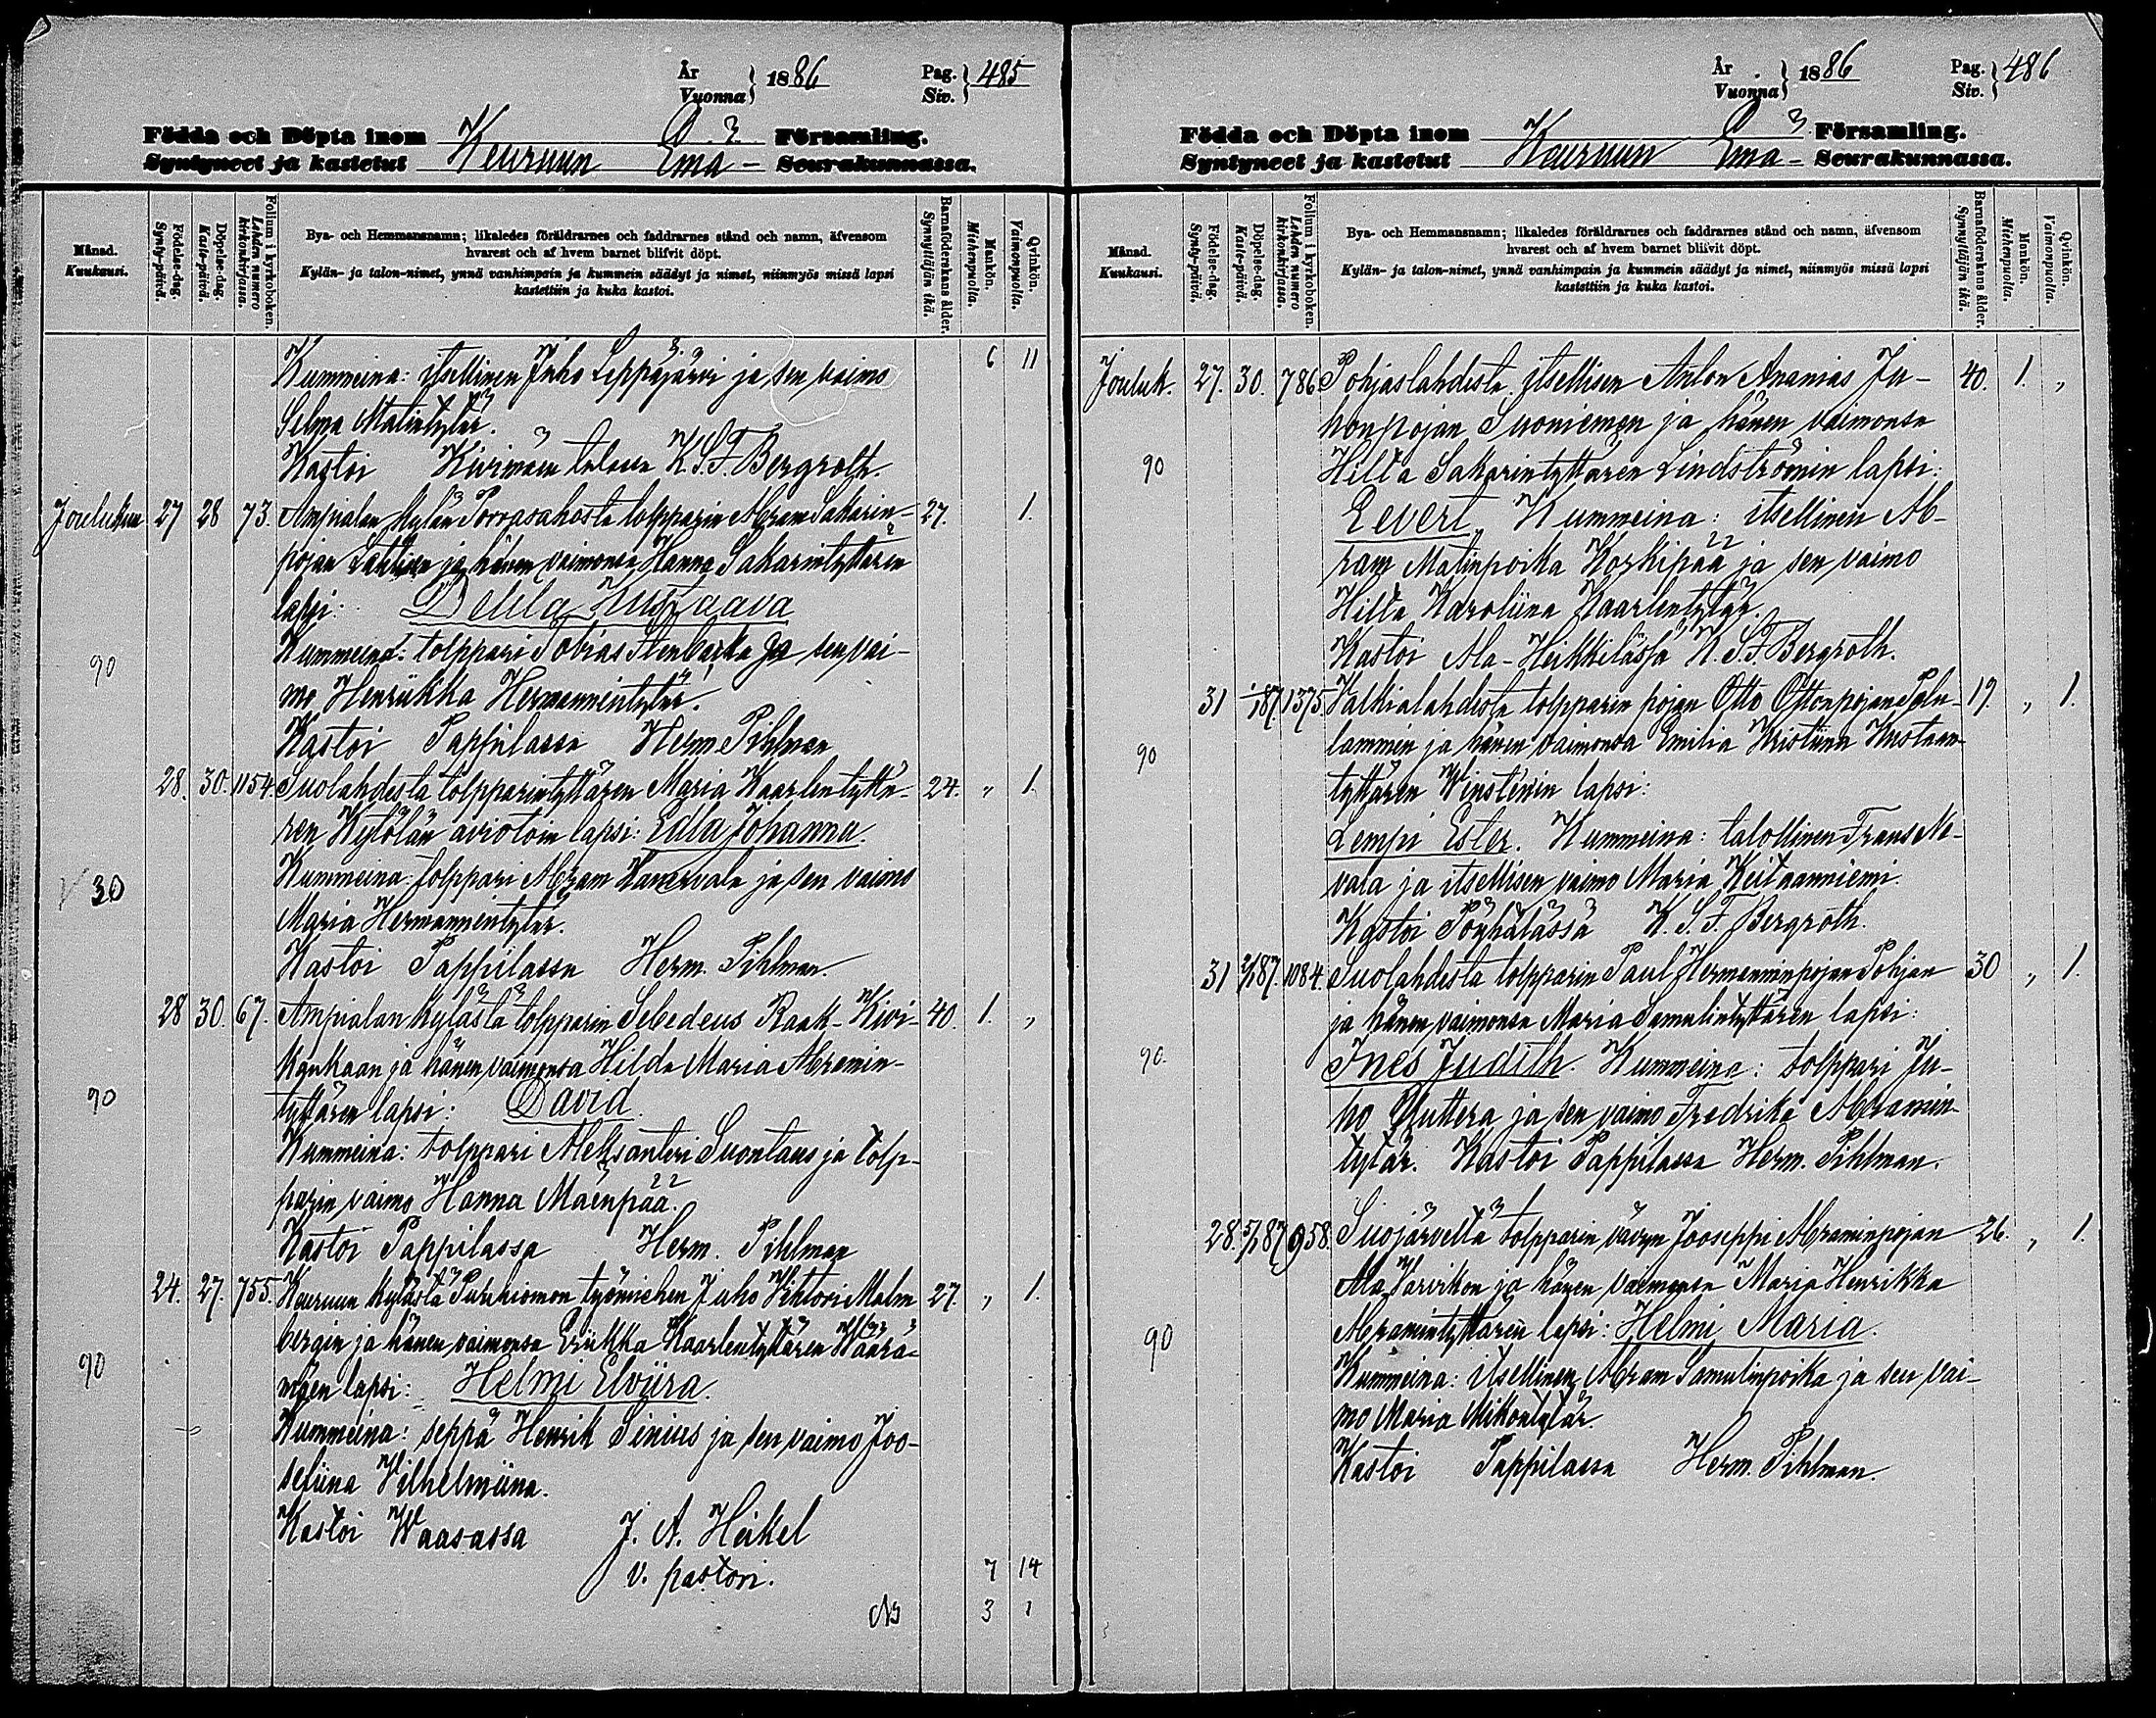 År Vuonna } 1886 Pag. Siv. } 485
Födda och Döpta inom Församling.
Syntyneet ja kastetut Keuruun Emä- Seurakunnassa.
Månad. Kuukausi.
Födelse-dag. Synty-päivä.
Döpelse-dag. Kaste-päivä.
Folium i kyrkoboken. Lehden numero kirkonkirjassa.
Bya- och Hemmansnamn; likaledes föräldrarnes och faddrarnes stånd och namn, äfvensom
hvarest och af hvem barnet blifvit döpt.
Kylän- ja talon-nimet, ynnä vanhimpain ja kummein säädyt ja nimet, niinmyös missä lapsi
kastettiin ja kuka kastoi.
Barnaföderskans ålder. Synnyttäjän ikä.
Mankön. Miehenpuolta.
Qvinkön. Vaimonpuolta.
Kummeina: itsellinen Juho Leppäjärvi ja sen vaimo 6 11
Selma Matintytär.
Kastoi talossa K. S. F. Bergroth.
Joulukuu 27 28 73. Ampialan kylän Porrasahosta torpparin Abram Sakarin- 27. 1.
pojan Lahtisen ja hänen vaimonsa Hanna Sakarintyttären
lapsi: Delila Kustaava
Kummeina: torppari Tobias Stenbacka ja sen vai-
90
mo Henriikka Hermannintytär.
Kastoi Pappilassa Herm. Pihlman
28. 30. 1154. Suolahdesta torpparintyttären Maria Kaarlentyttä- 24. „ 1.
ren Kytölän aviotoin lapsi: Edla Johanna.
Kummeina: torppari Abram Kanervala ja sen vaimo
V 30
Maria Hermannintytär.
Kastoi Pappilassa Herm. Pihlman.
28 30. 67. Ampialan kylästä torpparin Sebedeus Raak-Kivi- 40. 1. „
kankaan ja hänen vaimonsa Hilda Maria Abramin-
90 tyttären lapsi: David.
Kummeina: torppari Aleksanteri Suontaus ja torp-
parin vaimo Hanna Mäenpää.
Kastoi Pappilassa Herm. Pihlman
24. 27. 755. Keuruun kylästä työmiehen Juho Vihtori Malm 27. „ 1.
bergin ja hänen vaimonsa Eriikka Kaarlentyttären Wäärä-
90 mäen lapsi: Helmi Elviira.
Kummeina: seppä Henrik Sinius ja sen vaimo Joo-
sefiina Vilhelmiina.
Kastoi Waasassa J. A. Heikel
v. pastori. 7 14
3 1
År Vuonna } 1886 Pag. Siv. } 486
Födda och Döpta inom Församling.
Syntyneet ja kastetut Keuruun Emä- Seurakunnassa.
Månad. Kuukausi.
Födelse-dag. Synty-päivä.
Döpelse-dag. Kaste-päivä.
Folium i kyrkoboken. Lehden numero kirkonkirjassa.
Bya- och Hemmansnamn; likaledes föräldrarnes och faddrarnes stånd och namn, äfvensom
hvarest och af hvem barnet blifvit döpt.
Kylän- ja talon-nimet, ynnä vanhimpain ja kummein säädyt ja nimet, niinmyös missä lapsi
kastettiin ja kuka kastoi.
Barnaföderskans ålder. Synnyttäjän ikä.
Mankön. Miehenpuolta.
Qvinkön. Vaimonpuolta.
Jouluk. 27. 30. 786 Pohjaslahdesta itsellisen Anton Ananias Ju- 40. 1. „
honpojan Suoniemen ja hänen vaimonsa
90 Hilta Sakarintyttären Lindströmin lapsi:
Eevert. Kummeina: itsellinen Ab-
ram Matinpoika Korkipää ja sen vaimo
Hilta Karoliina Kaarlentytär.
Kastoi Ala-Heikkilässä K. S. F. Bergroth.
31 1/187. 1375. Valkialahdesta torpparin pojan Otto Ottonpojan Palu- 19. „ 1.
90 lammin ja hänen vaimonsa Emilia Kristiina Kustaan-
tyttären Winsténin lapsi:
Lempi Ester. Kummeina: talollinen Frans Ne-
vala ja itsellisen vaimo Maria Keitaanniemi.
Kastoi Pöyhölässä K. S. F. Bergroth.
31 2/187. 1084. Suolahdesta torpparin Paul Hermanninpojan Pohjan 30 „ 1.
ja hänen vaimonsa Maria Samulintyttären lapsi:
90. Ines Judith. Kummeina: torppari Ju-
ho Huttera ja sen vaimo Fredrika Abramin-
tytär. Kastoi Pappilassa Herm. Pihlman.
28. 5/187 958. Suojärveltä torpparin vävyn Jooseppi Abraminpojan 26. „ 1.
Ala Varvikon ja hänen vaimonsa Maria Henrikka
90 Abramintyttären lapsi: Helmi Maria.
Kummeina: itsellinen Abram Samulinpoika ja sen vai-
mo Maria Mikontytär.
Kastoi Pappilassa Herm. Pihlman.